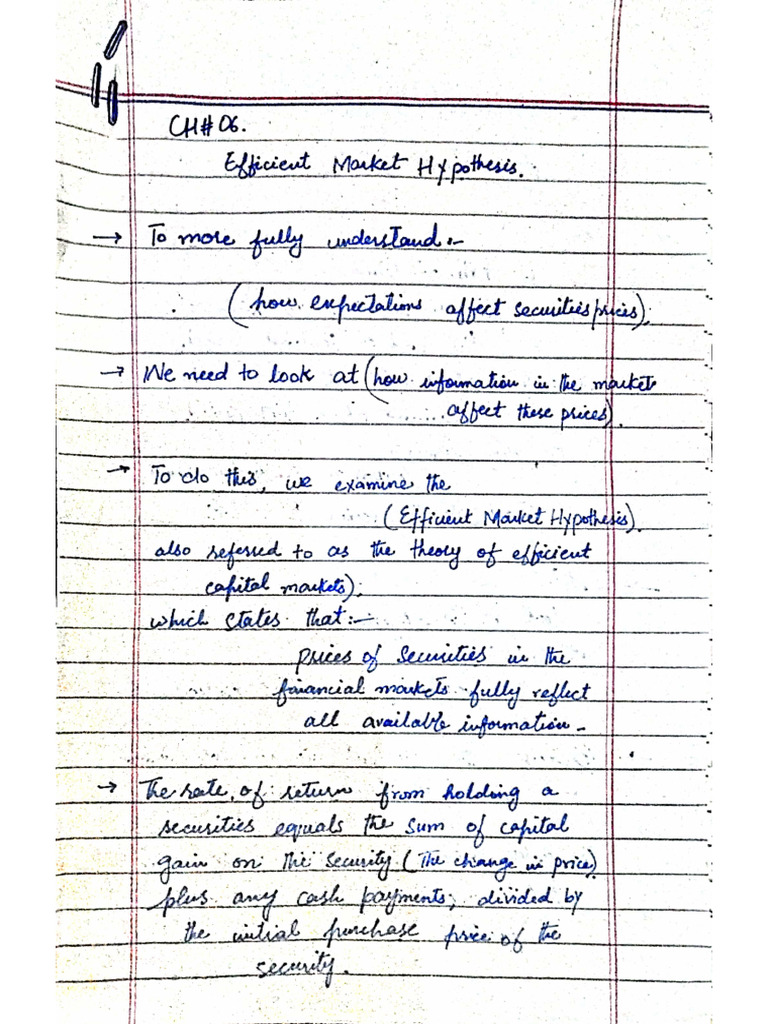 CH#06.
Efficient Market Hypothesis.
→ To more fully understand:-
(how expectations affect securities prices).
→ We need to look at (how information in the markets
affect these prices).
→ To do this, we examine the
(Efficient Market Hypothesis).
also referred to as the theory of efficient
capital markets);
which states that:-
prices of securities in the
financial markets fully reflect
all available information-
→ The rate of return from holding a
securities equals the sum of capital
gain on the security (The change in price)
plus any cash payments, divided by
the initial purchase price of the
security.